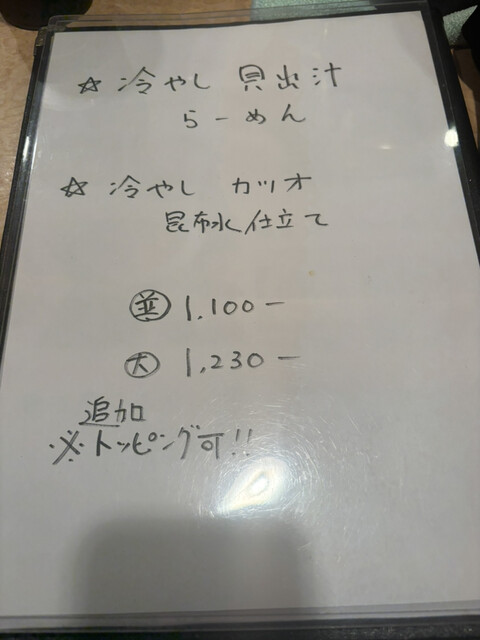 ☆ 冷やし 貝出汁
らーめん
☆ 冷やし カツオ
昆布水仕立て
㊀並 1,100ー
㊅大 1,230ー
追加
※トッピング可!!